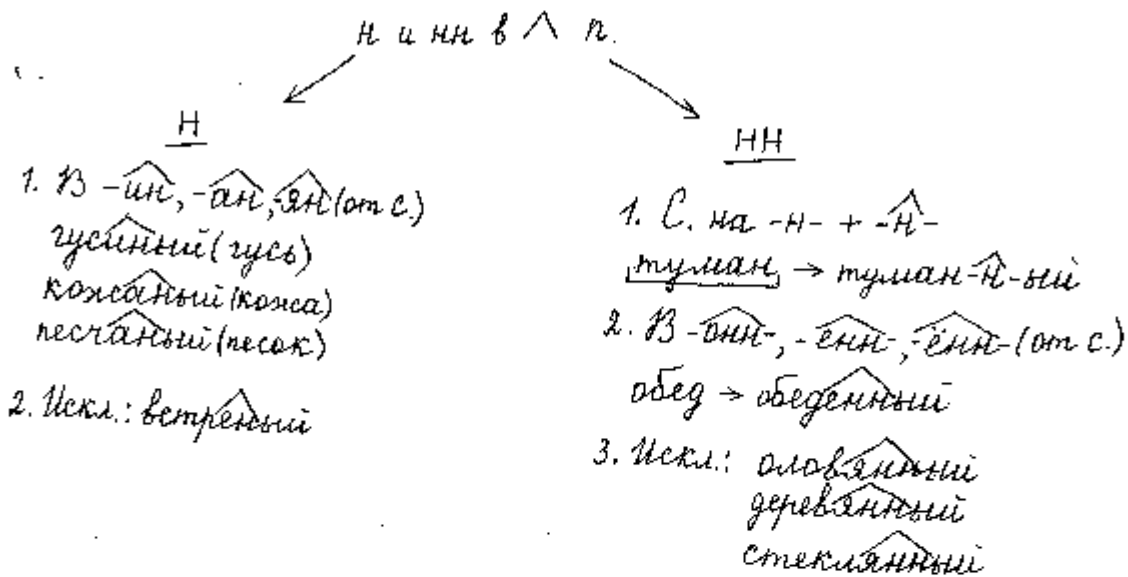 н и нн в ^ п.
Н
1. В -ин, -ан, -ян (от с.)
гусиный (гусь)
кожаный (кожа)
песчаный (песок)
2. Искл.: ветреный
НН
1. С. на -н- + -н-
туман → туман-н-ый
2. В -онн-, -енн-, -ённ- (от с.)
обед → обеденный
3. Искл.: оловянный
деревянный
стеклянный